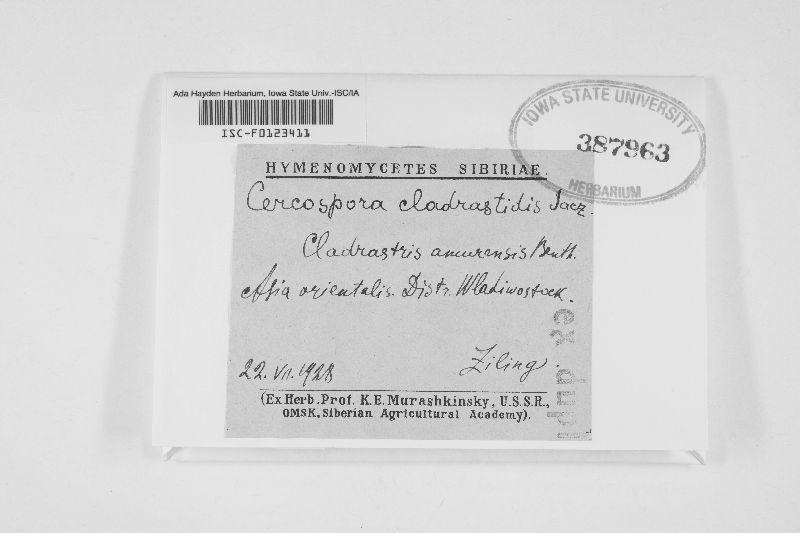 Ada Hayden Herbarium, Iowa State Univ.-ISC/IA
ISC-F0123411
IOWA STATE UNIVERSITY
387963
HERBARIUM
HYMENOMYCETES SIBIRIAE.
Cercospora cladrastidis Jacz.
Cladrastris amurensis Benth.
Asia orientalis. Distr. Wladiwostock.
22. VII. 1928
Ziling.
(Ex Herb. Prof. K. E. Murashkinsky, U.S.S.R.,
OMSK, Siberian Agricultural Academy).
ex dup